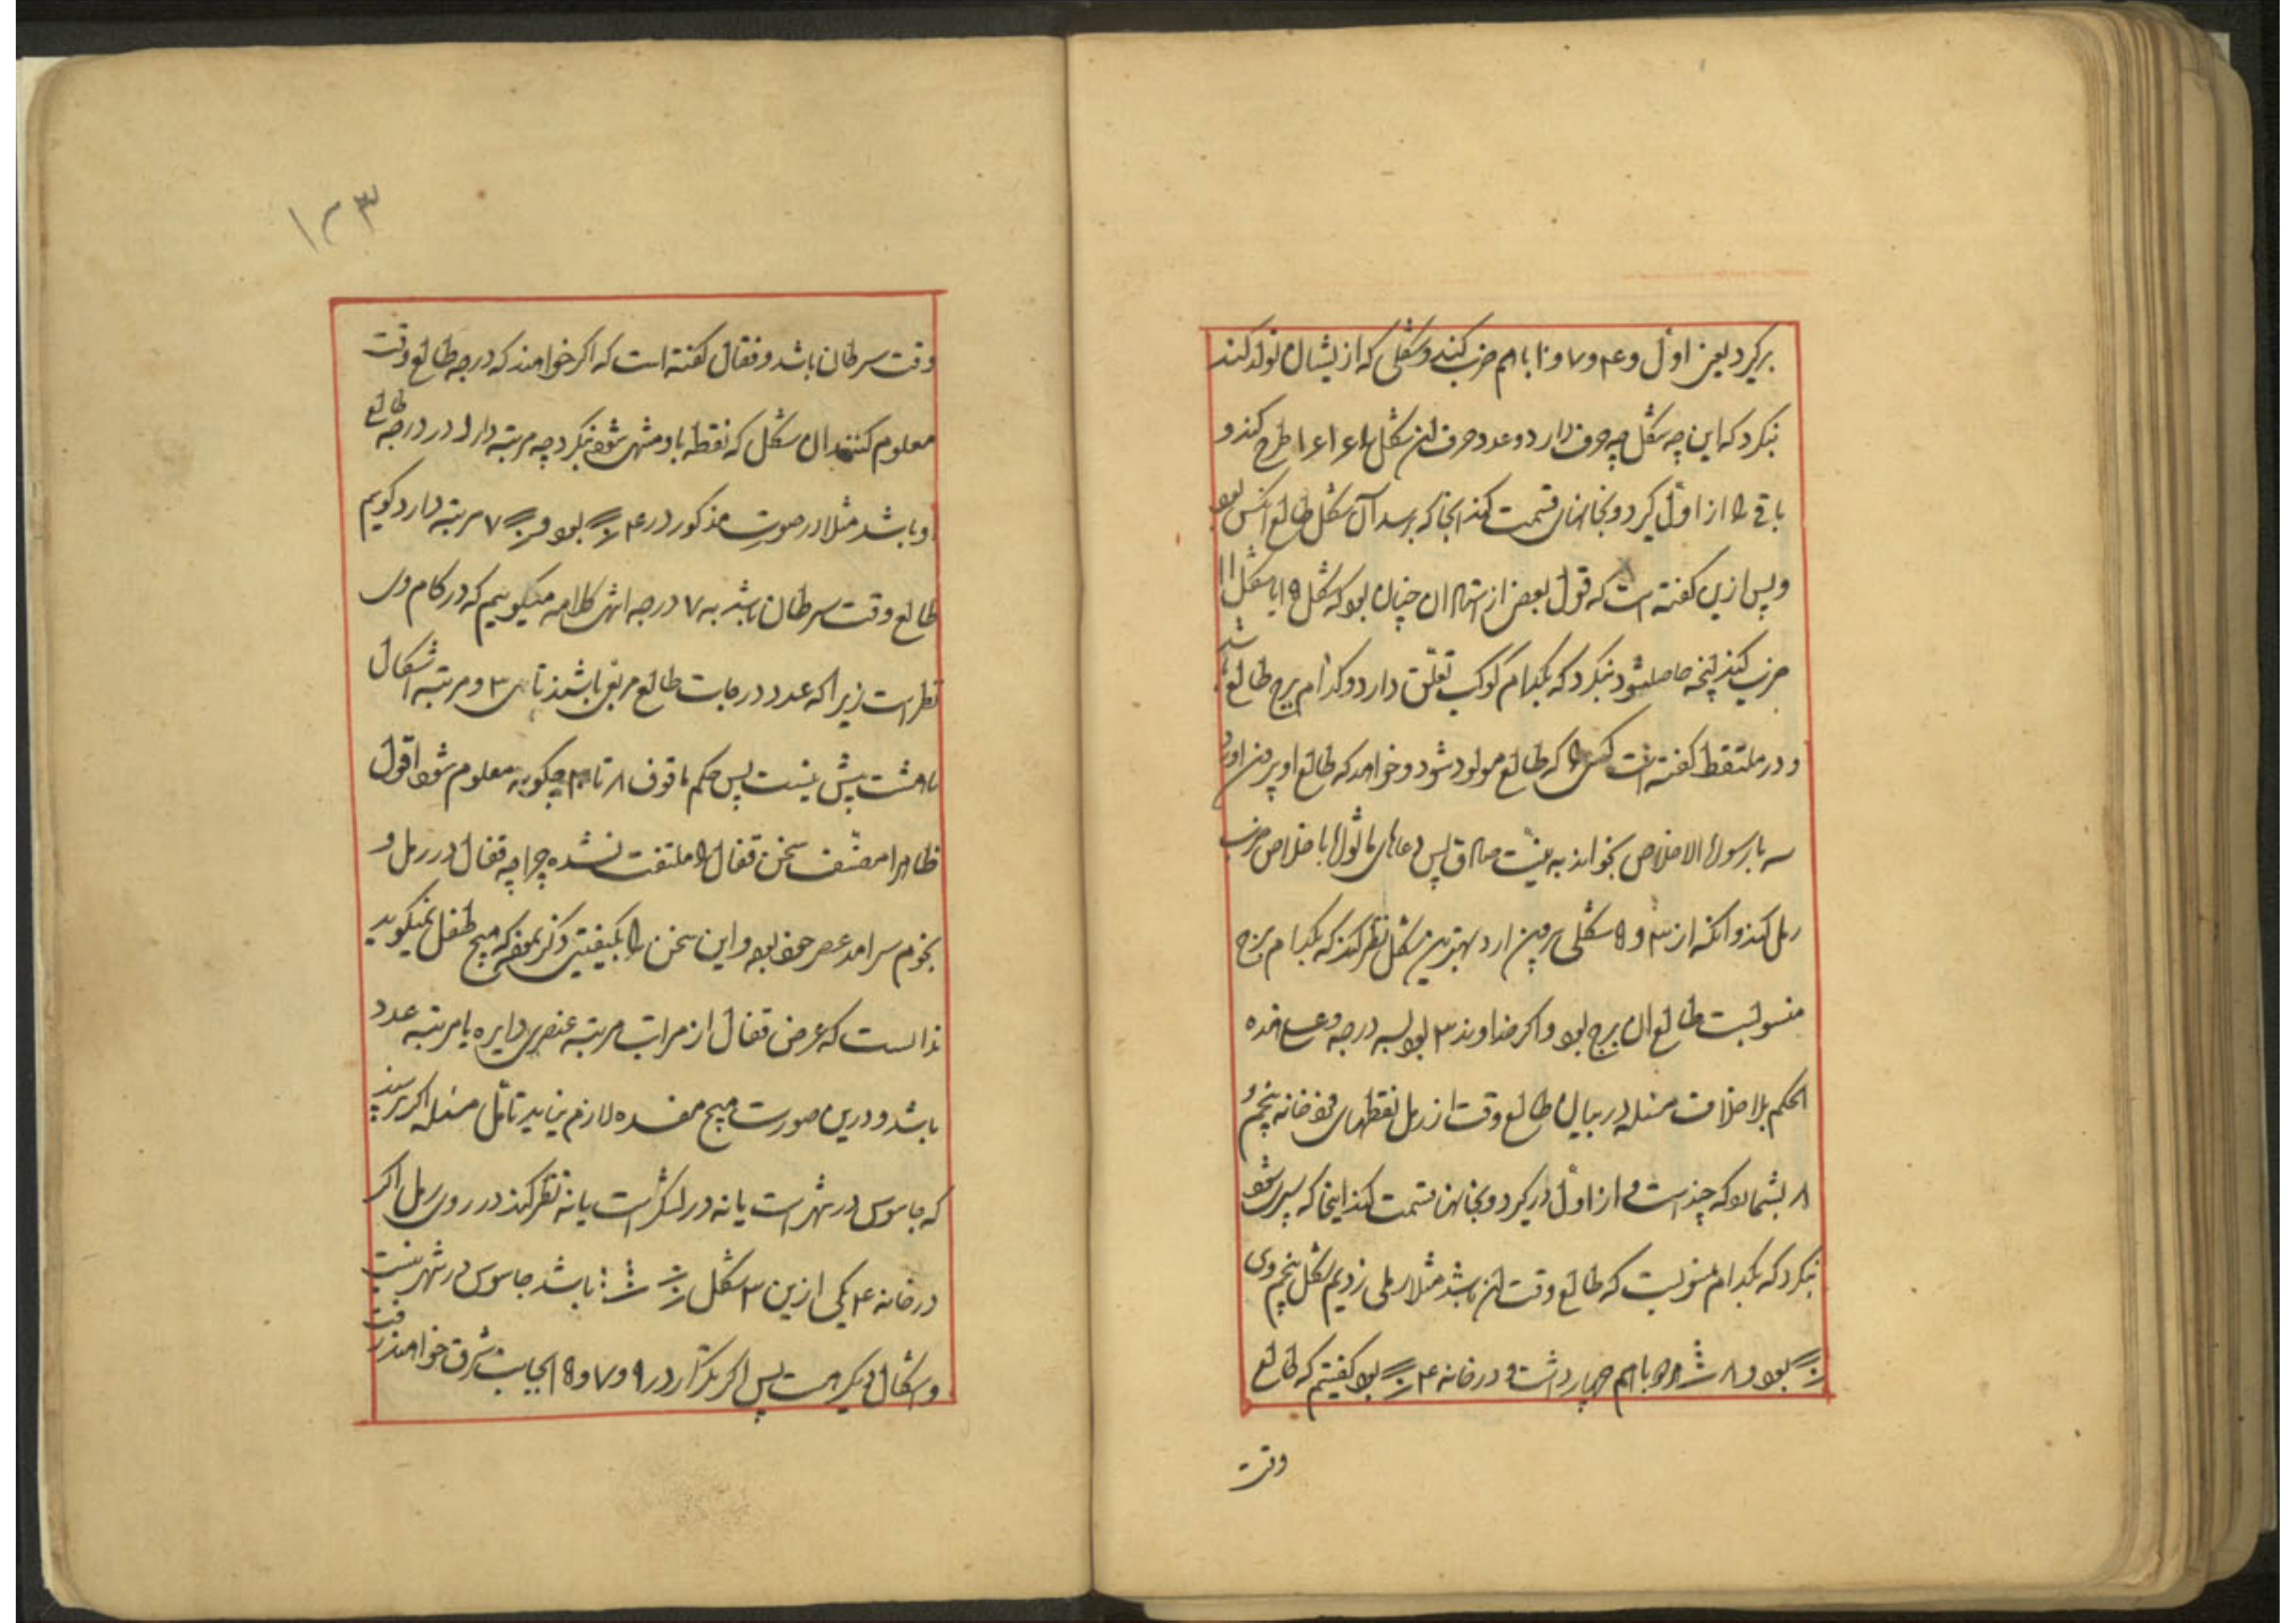 برکیرد یعنی اول و ۴ و ۷ و ۱۰ باهم ضرب کند و شکلی که از یشان تولد کند
بنکرد که این چه شکل چه حرف دارد و عدد حرف ان شکل ۱۶ ۱۶ طرح کند و
باقی را از اول کیرد و بخانهای قسمت کند انجا که برسد آن شکل طالع انکس بود
و پس ازین کفته است که قول بعضی از استادان چنان بود که شکل ۱۵ با شکل ۱۱
ضرب کند انچه حاصل شود بنکرد که بکدام کوکب تعلق دارد و کدام برج طالع باشد
و در ملتقط کفته است کسی را که طالع مولود شود و خواهد که طالع او بیرون اورد
سه بار سورة الاخلاص بخواند به نیت صادق پس دعاهای ماثوله با خلاص ضرب
رمل کند و انکه از ۳ و ۵ شکلی بیرون ارد بهترین شکل نظر کند که بکدام برج
منسوبست طالع ان برج بود و اکر خداوند ۳ بود بسه درجه و علی هذه
الحکم بلا خلاف مسئله در بیان طالع وقت از رمل نقطهای فرد خانه پنجم و
۸ بشمارد که چند است و از اول درکیرد و بخانهن قسمت کند اینجا که سپری شود
بنکرد که بکدام منسوبست که طالع وقت ان باشد مثلا رملی زدیم شکل پنجم وی
بود و ۸ فرد باهم چهار داشت و در خانه ۴ بود کفتیم که طالع
وقت
۱۲۳
وقت سرطان باشد و قفال کفته است که اکر خواهند که درجه طالع وقت
معلوم کنند ان شکل که نقطه باو منتهی شود بنکرد چه مرتبه دارد در درجه طالع
او باشد مثلا در صورت مذکور در ۴ بود و ۷ مرتبه دارد کویم
طالع وقت سرطان باشد به ۷ درجه انتهی کلامه میکوییم که در کلام وی
نظر است زیرا که عدد درجات طالع مرتقی باشند تا سی ۳ و مرتبه اشکال
تا هشت پیش نیست پس حکم ما فوق ۸ تا ۳۰ چکونه معلوم شود اقول
ظاهرا مصنف سخن قفال را ملتفت نشده چرا چه قفال در رمل و
نجوم سرامد عصر خود بود و این سخن را بکیفیتی ذکر نموده که هیچ طفل نمیکوید
بدانست که غرض قفال از مراتب مرتبه عنصری دایره یا مرتبه عدد
باشد و درین صورت هیچ مفسده لازم نیاید تامل مسئله اکر پرسند
که جاسوس در شهر است یا نه در لشکر است یا نه نظر کند در روی رمل اکر
در خانه ۴ یکی ازین ۳ شکل باشد جاسوس در شهر نیست
و اشکال دیکر هست پس اکر تکرار در ۹ و ۷ و ۱۵ بجانب شرق خواهند رفت